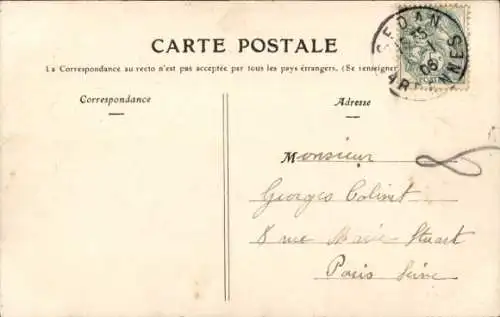 CARTE POSTALE
La Correspondance au recto n'est pas acceptée par tous les pays étrangers. (Se renseigner
Correspondance
Adresse
SEDAN
06
ARDENNES
Monsieur
Georges Colinet
8 rue Marie Stuart
Paris Seine